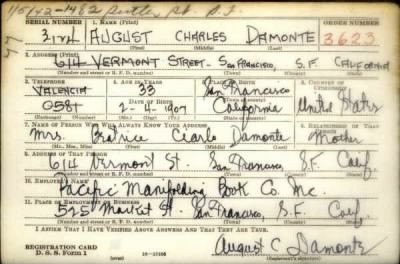 SERIAL NUMBER 1. NAME (Print) ORDER NUMBER
AUGUST CHARLES DAMONTE 3623
(First) (Middle) (Last)
2. ADDRESS (Print)
614 VERMONT STREET. SAN FRANCISCO, S.F. CALIFORNIA
3. TELEPHONE 4. AGE IN YEARS 5. PLACE OF BIRTH 6. COUNTRY OF CITIZENSHIP
VALENCIA 33 San Francisco
DATE OF BIRTH
0581 2-4-1907 California United States
(Exchange) (Number) (Mo.) (Day) (Yr.) (State or country)
7. NAME OF PERSON WHO WILL ALWAYS KNOW YOUR ADDRESS 8. RELATIONSHIP OF THAT PERSON
Mrs. Clara Damonte Mother
(Mr., Mrs., Miss) (First) (Middle) (Last)
9. ADDRESS OF THAT PERSON
614 Vermont St. San Francisco, S.F. Calif.
(Number and street or R. F. D. number) (Town) (County) (State)
10. EMPLOYER'S NAME
Pacific Manifolding Book Co. Inc.
11. PLACE OF EMPLOYMENT OR BUSINESS
525 Market St. San Francisco, S.F. Calif.
(Number and street or R. F. D. number) (Town) (County) (State)
I AFFIRM THAT I HAVE VERIFIED ABOVE ANSWERS AND THAT THEY ARE TRUE.
REGISTRATION CARD
D. S. S. Form 1
August C Damonte
(Registrant's signature)